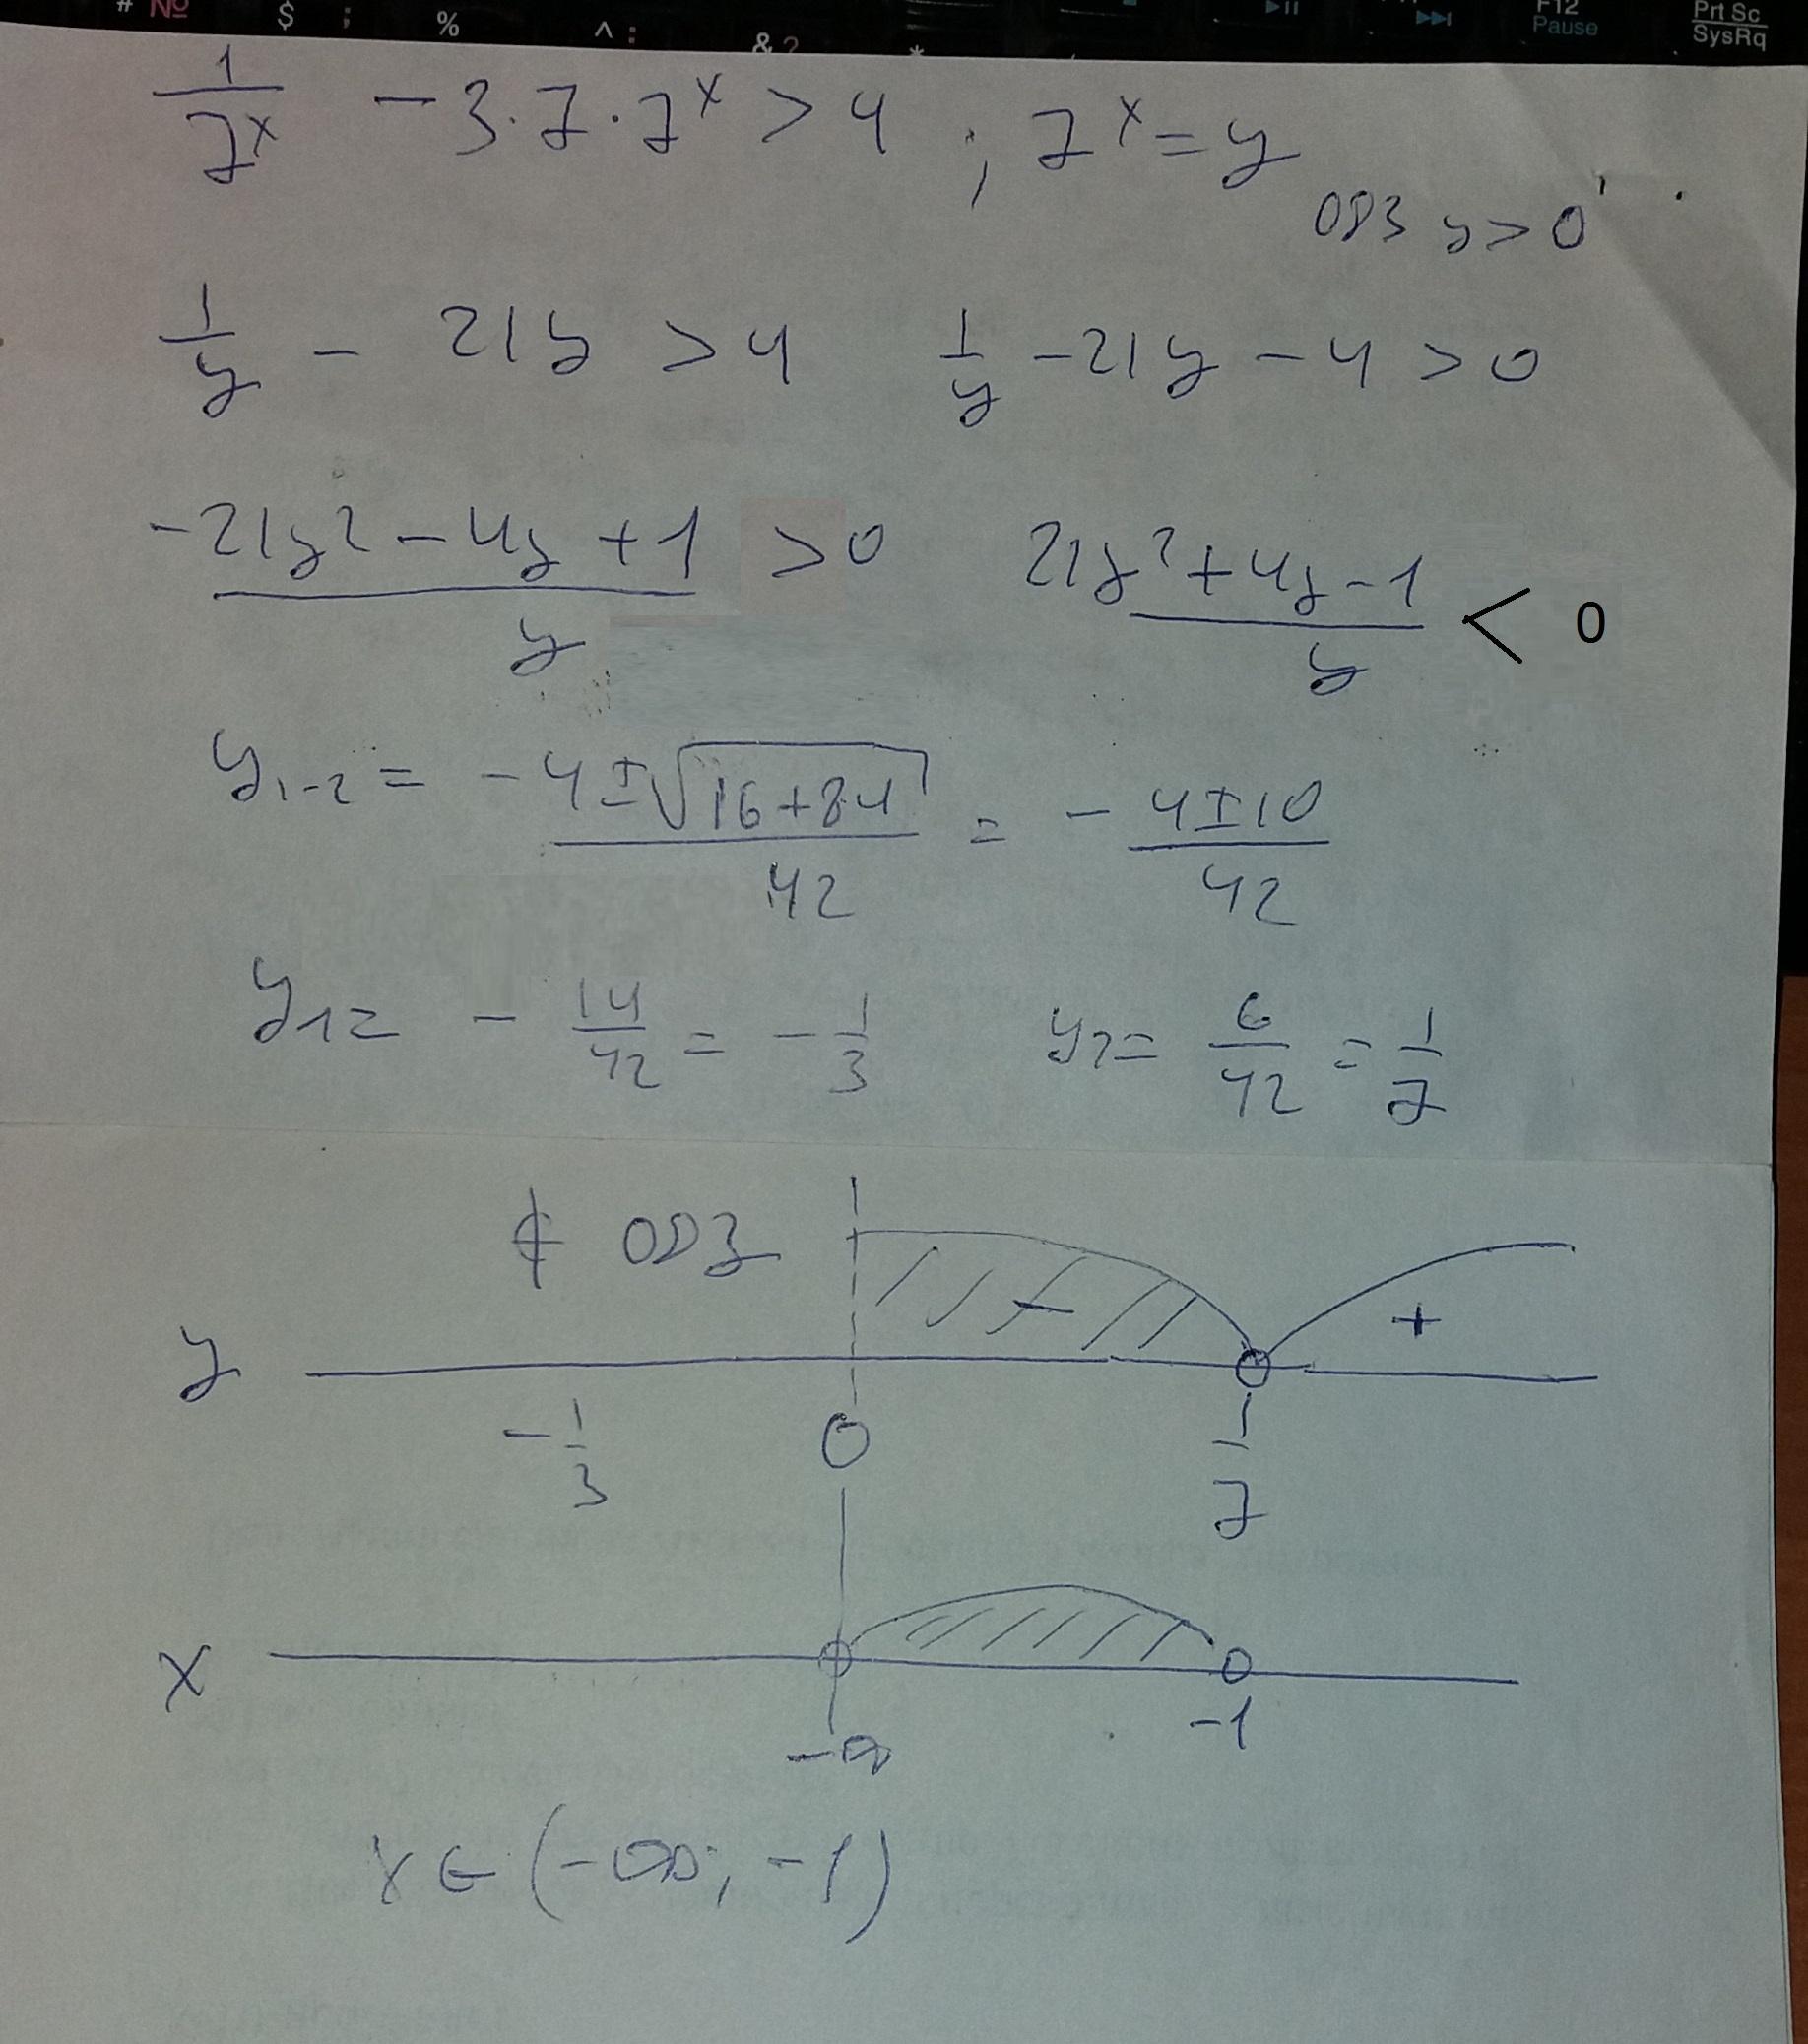 # № $ ; % ^ : & ? * F12 Pause Prt Sc SysRq
1/7^x - 3·7·7^x > 4 ; 7^x = y
ОДЗ y > 0
1/y - 21y > 4 1/y - 21y - 4 > 0
(-21y² - 4y + 1)/y > 0 (21y² + 4y - 1)/y < 0
y₁₋₂ = (-4 ± √(16+84))/42 = (-4 ± 10)/42
y₁ = -14/42 = -1/3 y₂ = 6/42 = 1/7
∉ ОДЗ - +
y -1/3 0 1/7
x -∞ -1
x ∈ (-∞; -1)